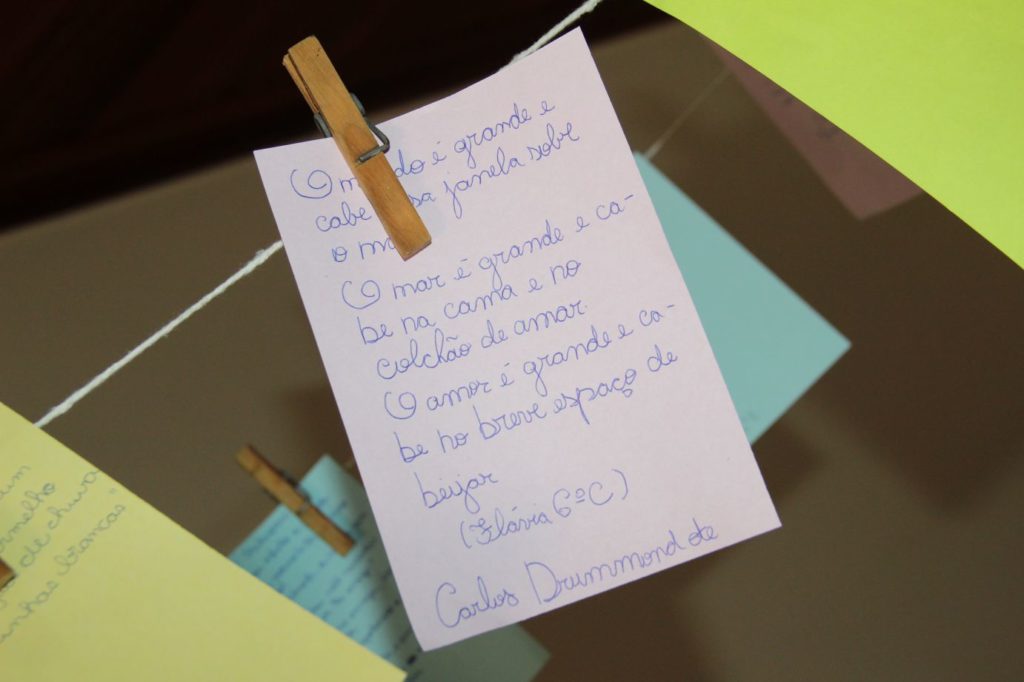 O é grande e
cabe janela sobre
o
O mar é grande e ca-
be na cama e no
colchão de amar.
O amor é grande e ca-
be no breve espaço de
beijar
(Flávia 6ºC)
Carlos Drummond de
um
rmelho
de chuva
unhas brancas"